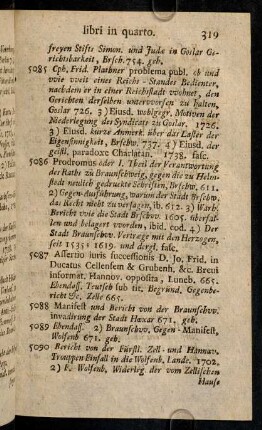 libri in quarto. 319
freyen Stifts Simon. und Judæ in Goslar Ge-
richtsbarkeit, Brsch. 754. geb.
5085 Cph. Frid. Plathner problema publ. ob und
wie weit eines Reichs - Standes Bedienter,
nachdem er in einer Reichsstadt wohnet, den
Gerichten derselben unterworfen zu halten,
Goslar 726. 3) Ejusd. wohlgegr. Motiven der
Niederlegung des Syndicats zu Goslar, 1726.
3) Ejusd. kurze Anmerk. über das Laster der
Eigensinnigkeit, Brschw. 737. 4) Ejusd. der
geistl. paradoxe Charlatan. 1738. fasc.
5086 Prodromus oder I. Theil der Verantwortung
des Raths zu Braunschweig, gegen die zu Helm-
stedt neulich gedruckte Schriften, Brschw. 611.
2) Gegen-Ausführung, warum der Stadt Brschw.
das Recht nicht zu versagen, ib. 612. 3) Warh.
Bericht wie die Stadt Brschw. 1605. überfal-
len und belagert worden, ibid. cod. 4) Der
Stadt Braunschw. Vertrege mit den Herzogen,
seit 1535 1619. und dergl. fasc.
5087 Assertio iuris successionis D. Jo. Frid. in
Ducatus Cellensem & Grubenh. &c. Brevi
informat. Hannov. opposita, Luneb. 665.
Ebendass. Teutsch sub tit. Begründ. Gegenbe-
richt &c. Zelle 665.
5088 Manifest und Bericht von der Braunschw.
invadirung der Stadt Höxar 671. geb.
5089 Ebendass. 2) Braunschw. Gegen-Manifest,
Wolfenb. 671. geb.
5090 Bericht von der Fürstl. Zell- und Hannov.
Trouppen Einfall in die Wolfenb. Lande. 1702.
2) F. Wolfenb. Widerleg. der vom Zellischen
Hause